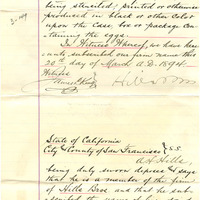 being stenciled, printed or otherwise
produced in black or other color
upon the case, box or package con-
taining the eggs.
In Witness Whereof we have here-
unto subscribed our firm name this
20th day of March A.D. 1894.
Witness
Hills Bros
State of California
City & County of San Francisco } S.S.
A. H. Hills,
being duly sworn deposes & says
that he is a member of the firm
of Hills Bros and that he sub-